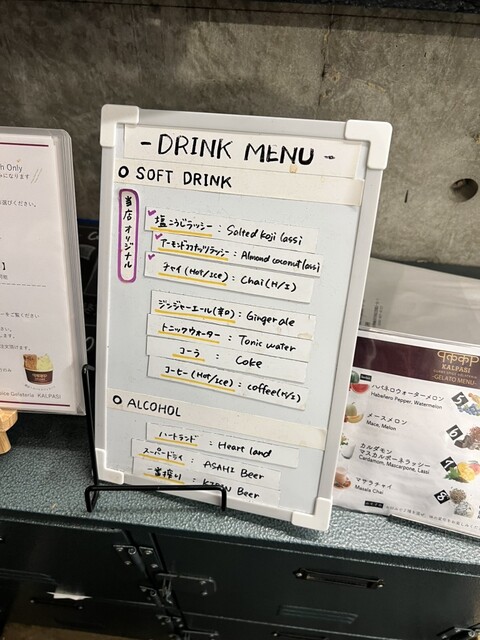 - DRINK MENU -
SOFT DRINK
当店オリジナル
塩こうじラッシー : Salted Koji lassi
アーモンドココナッツラッシー : Almond coconut lassi
チャイ (Hot/Ice) : Chai (H/I)
ジンジャーエール(辛口) : Ginger ale
トニックウォーター : Tonic water
コーラ : Coke
コーヒー (Hot/Ice) : coffee (H/I)
ALCOHOL
ハートランド : Heart land
スーパードライ : ASAHI Beer
一番搾り : KIRIN Beer
h Only
になります
KALPASI
KALPASI
-GELATO MENU-
ハバネロウォーターメロン
Habañero Pepper, Watermelon
メースメロン
Mace, Melon
カルダモン
マスカルポーネラッシー
Cardamon, Mascarpone, Lassi
マサラチャイ
Masala Chai